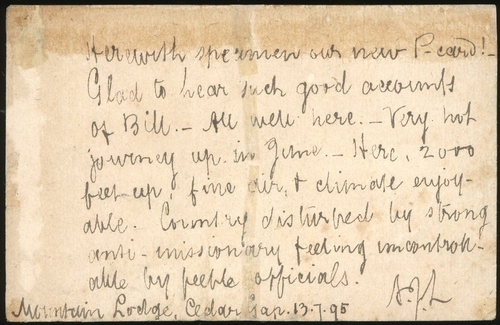 Herewith specimen our new P-card!-
Glad to hear such good accounts
of Bill. - All well here. - Very hot
journey up in June. - Here, 2000
feet up, fine air, & climate enjoy-
able. Country disturbed by strong
anti-missionary feeling uncontroll-
able by feeble officials.
Mountain Lodge, Cedar Gap. 13.7.95